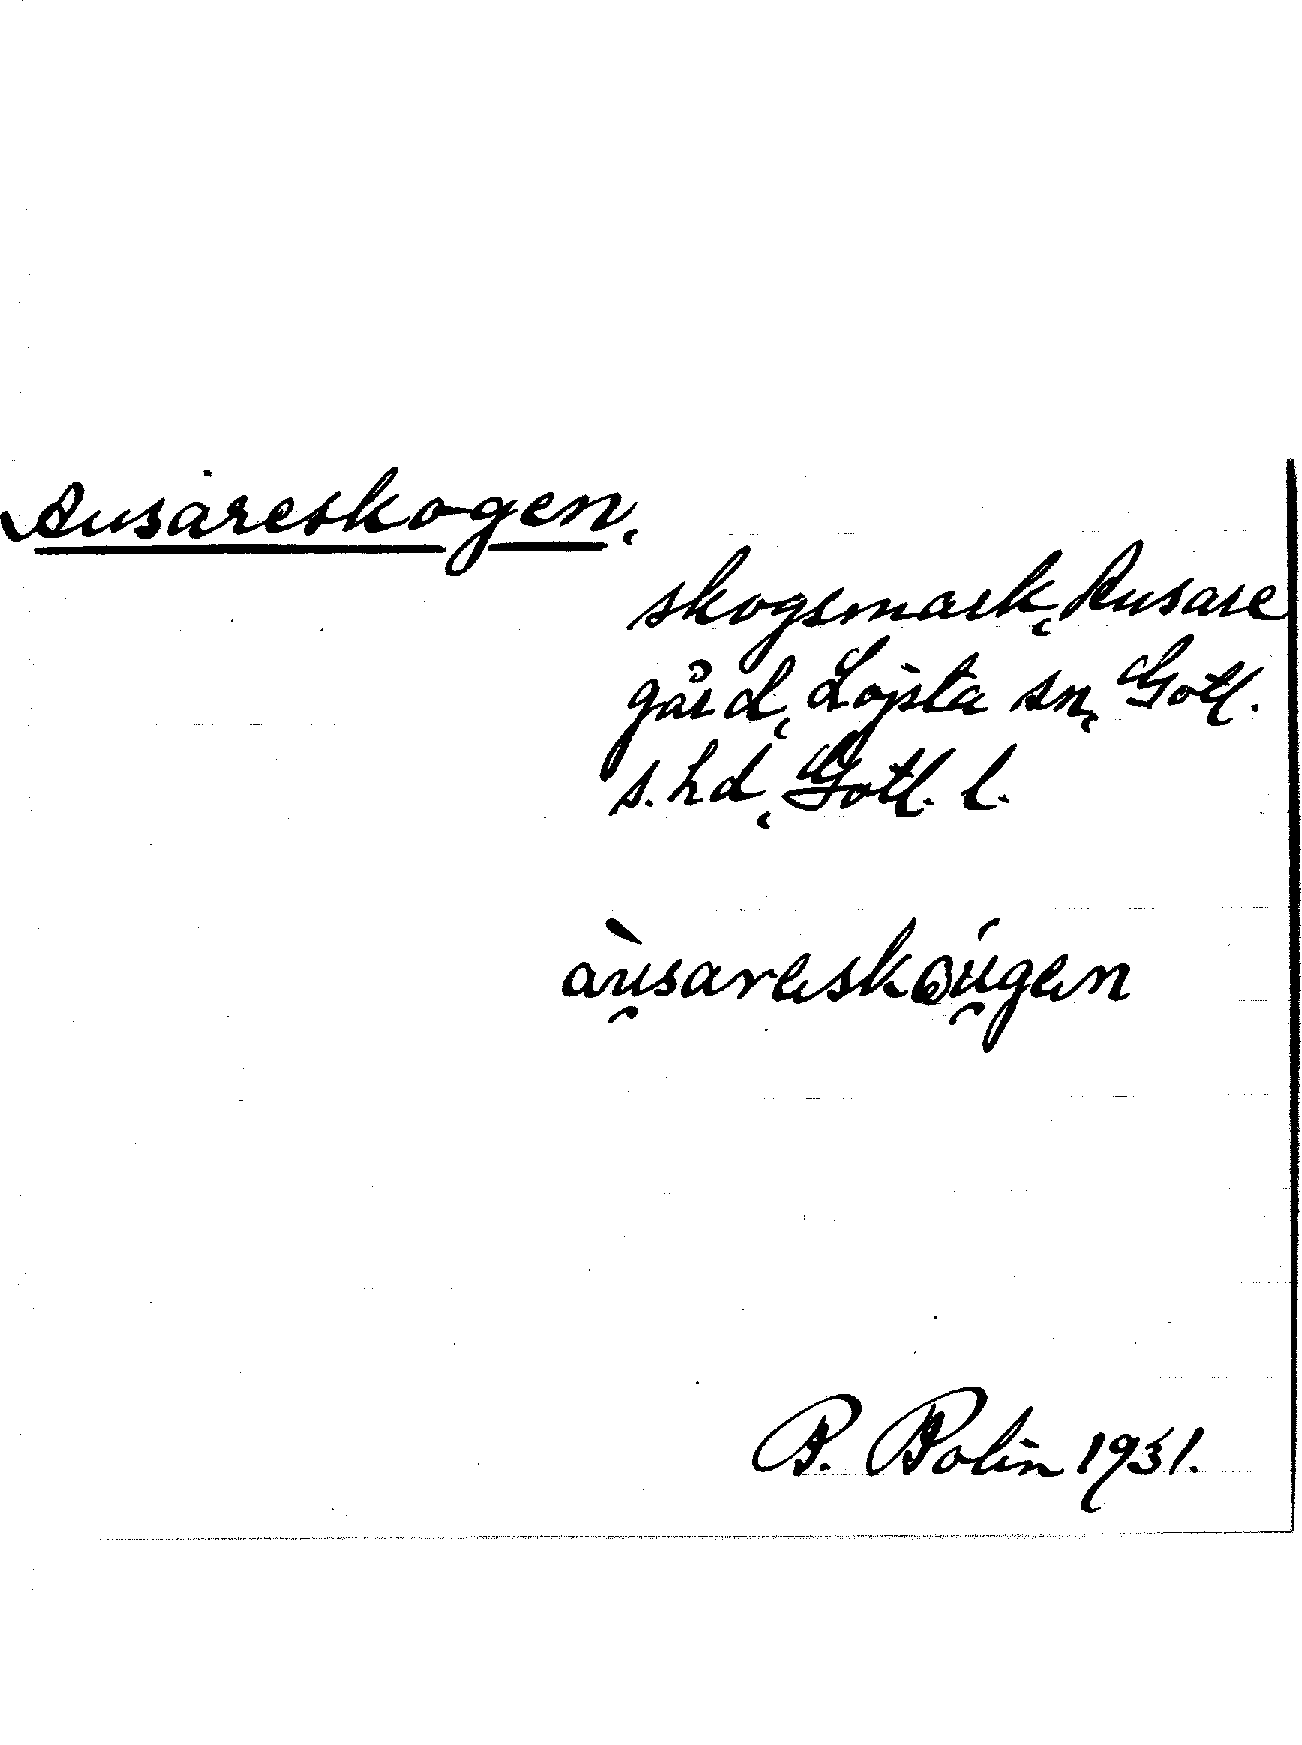 Ausareskogen,
skogsmark, Ausare
gård, Lojsta sn, Gotl.
s. hd, Gotl. l.
àu̯saræskɷú̯gæn
B. Bolin 1931.